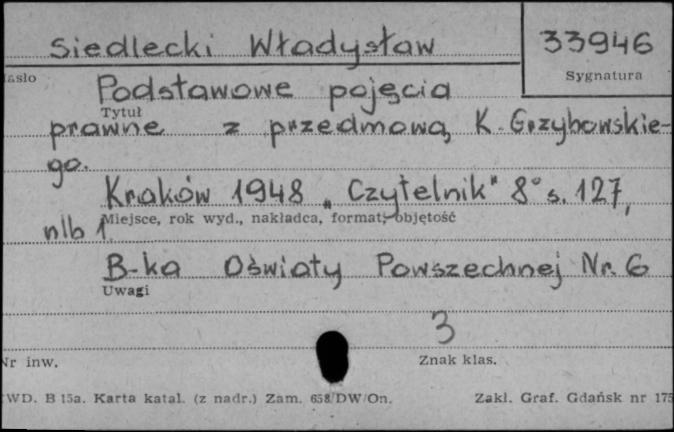 Siedlecki Władysław
33946
asło
Sygnatura
Podstawowe pojęcia
Tytuł
prawne z przedmową K. Grzybowskie-
go.
Kraków 1948 „Czytelnik" 8° s. 127,
Miejsce, rok wyd., nakładca, format, objętość
nlb 1.
B-ka Oświaty Powszechnej Nr. 6
Uwagi
3
Nr inw.
Znak klas.
WD. B 15a. Karta katal. (z nadr.) Zam. 658/DW/On.
Zakł. Graf. Gdańsk nr 175